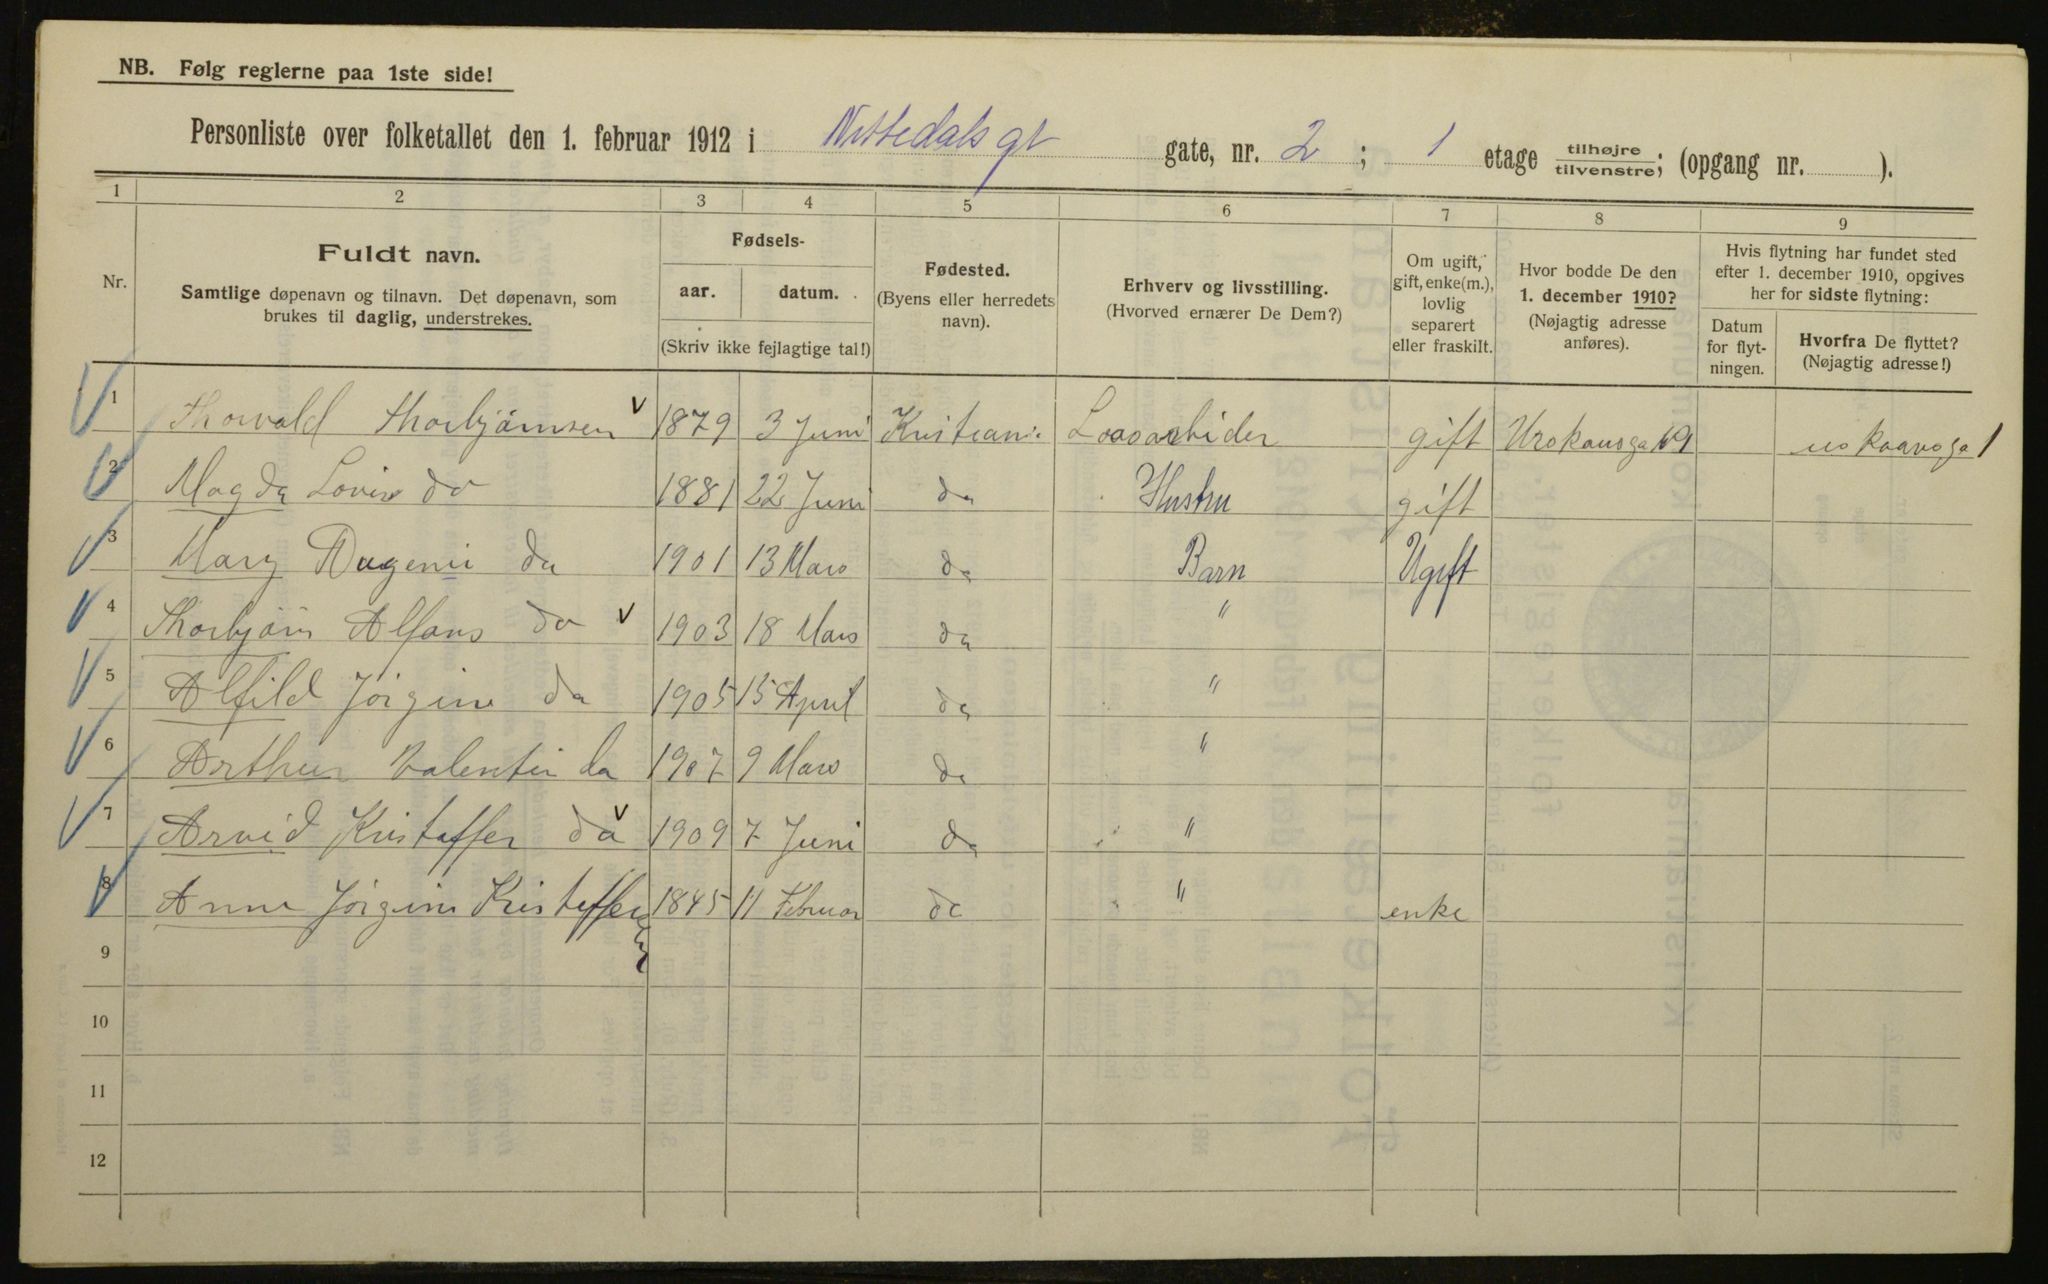 NB. Følg reglerne paa 1ste side!
Personliste over folketallet den 1. februar 1912 i Nittedals gt gate, nr. 2 ; 1 etage tilhøjre tilvenstre; (opgang nr. ).
1 2 3 4 5 6 7 8 9
Nr.
Fuldt navn.
Samtlige døpenavn og tilnavn. Det døpenavn, som
brukes til daglig, understrekes.
Fødsels-
aar. datum.
(Skriv ikke fejlagtige tal!)
Fødested.
(Byens eller herredets
navn).
Erhverv og livsstilling.
(Hvorved ernærer De Dem?)
Om ugift,
gift, enke(m.),
lovlig
separert
eller fraskilt.
Hvor bodde De den
1. december 1910?
(Nøjagtig adresse
anføres).
Hvis flytning har fundet sted
efter 1. december 1910, opgives
her for sidste flytning:
Datum
for flyt-
ningen.
Hvorfra De flyttet?
(Nøjagtig adresse!)
1 Thorvald Thorbjørnsen 1879 3 Juni Kristiania gift
2 Magda Lovise do 1881 22 Juni da Hustru gift
3 Mary da 1901 13 Mars da Barn Ugift
4 Thorbjørn Alfons do 1903 18 Mars da "
5 Alfild Jørgine da 1905 15 April da "
6 Arthur Valentin da 1907 9 Mars da "
7 Arvid Kristoffer da 1909 7 Juni da "
8 Anne Jørgine Kristoffersen 1845 11 Februar da " enke
9
10
11
12